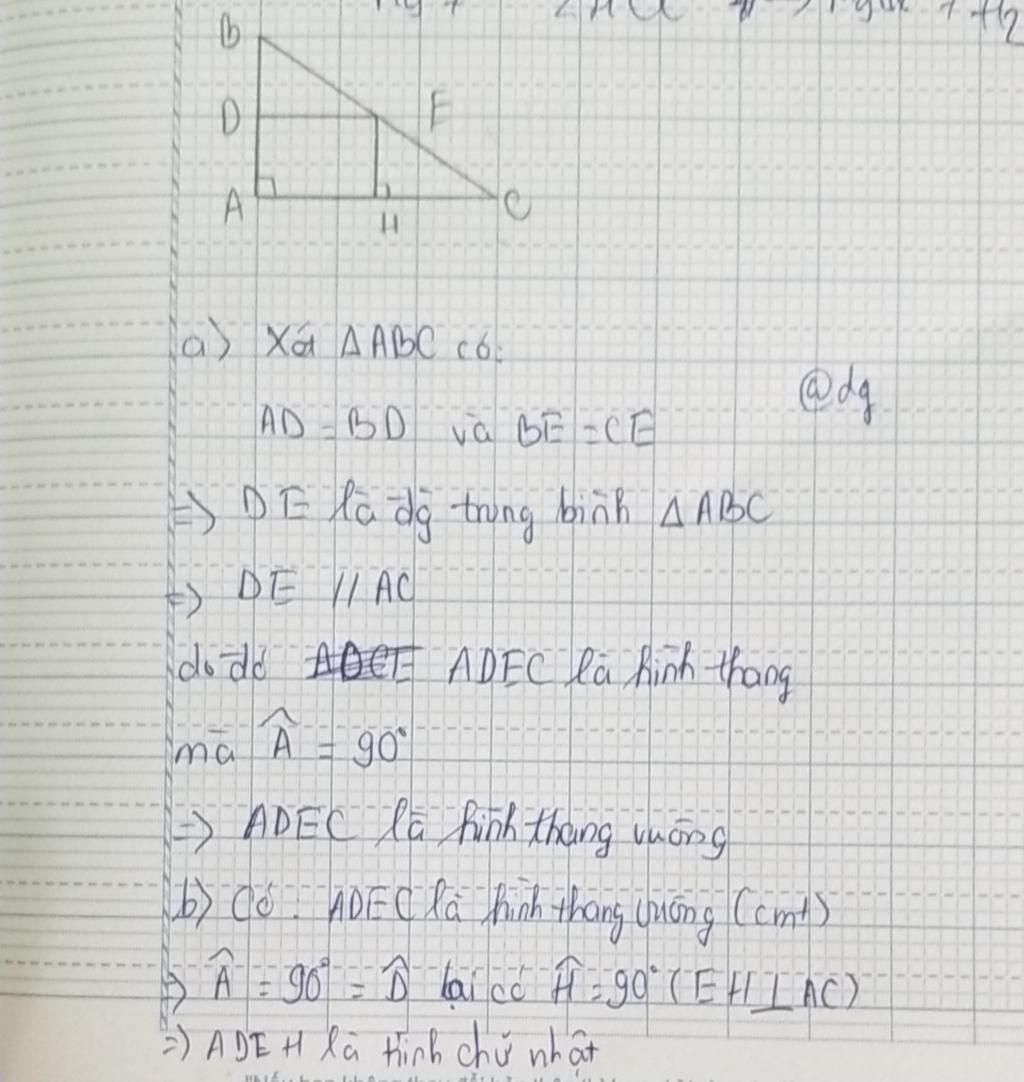 B
D
E
A
H
C
a) Xét ΔABC có:
@dg
AD = BD và BE = CE
=> DE là đg trung bình ΔABC
=> DE // AC
do đó ADEC là hình thang
mà Â = 90°
=> ADEC là hình thang vuông
b) Có: ADEC là hình thang vuông (cmt)
=> Â = 90° = D̂ lại có Ĥ = 90° (EH ⊥ AC)
=> ADEH là hình chữ nhật